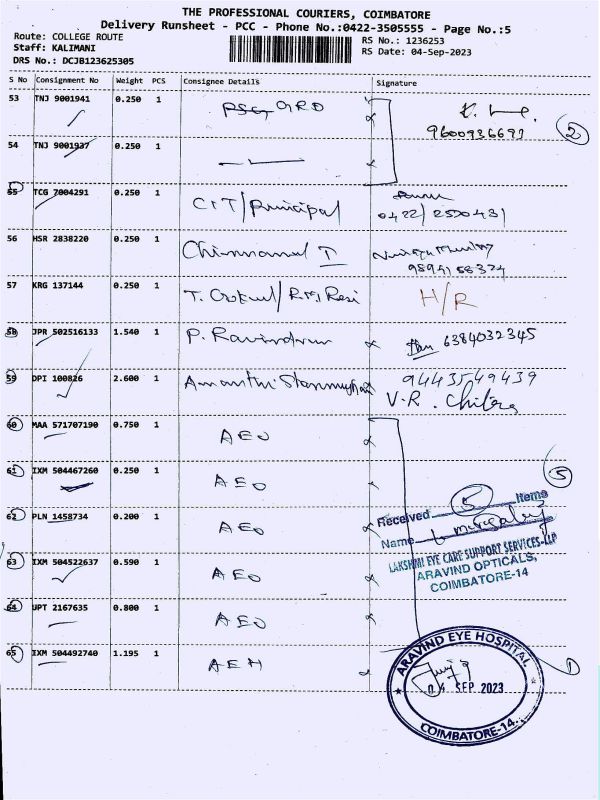 THE PROFESSIONAL COURIERS, COIMBATORE
Delivery Runsheet - PCC - Phone No.:0422-3505555 - Page No.:5
Route: COLLEGE ROUTE
Staff: KALIMANI
DRS No.: DCJB123625305
RS No.: 1236253
RS Date: 04-Sep-2023
S No Consignment No Weight PCS Consignee Details Signature
53 TNJ 9001941 0.250 1 GRD
9600936691
2
54 TNJ 9001937 0.250 1
55 TCG 7004291 0.250 1 CIT/Principal
0422/2520431
56 HSR 2838220 0.250 1
57 KRG 137144 0.250 1 H/R
58 JPR 502516133 1.540 1 P. Ravindran 6384032345
59 DPI 100826 2.600 1 9443549439
V.R. Chitra
60 MAA 571707190 0.750 1 AEO
61 IXM 504467260 0.250 1 AEO
5
62 PLN 1458734 0.200 1 AEO
Received 5 Items
Name
LAKSHMI EYE CARE SUPPORT SERVICES-LLP
ARAVIND OPTICALS,
COIMBATORE-14
63 IXM 504522637 0.590 1 AEO
64 UPT 2167635 0.800 1 AEO
65 IXM 504492740 1.195 1 AEH
1
ARAVIND EYE HOSPITAL
04 SEP 2023
COIMBATORE-14.